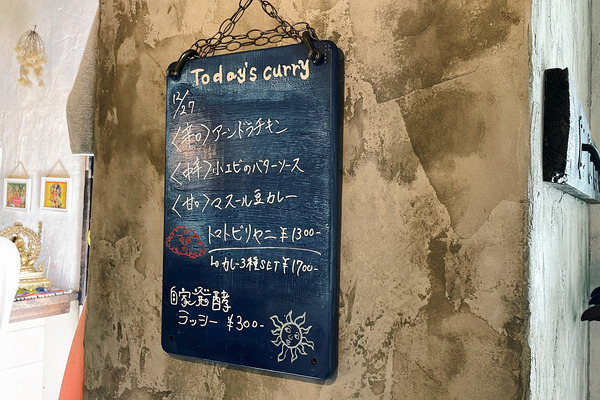 Today's curry
12/27
〈辛口〉アーンドラチキン
〈中辛〉小エビのバターソース
〈甘口〉マスール豆カレー
トマトビリヤニ ¥1300-
↳カレー3種SET ¥1700-
自家発酵
ラッシー ¥300-